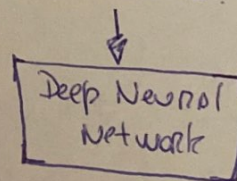 Deep Neural
Network